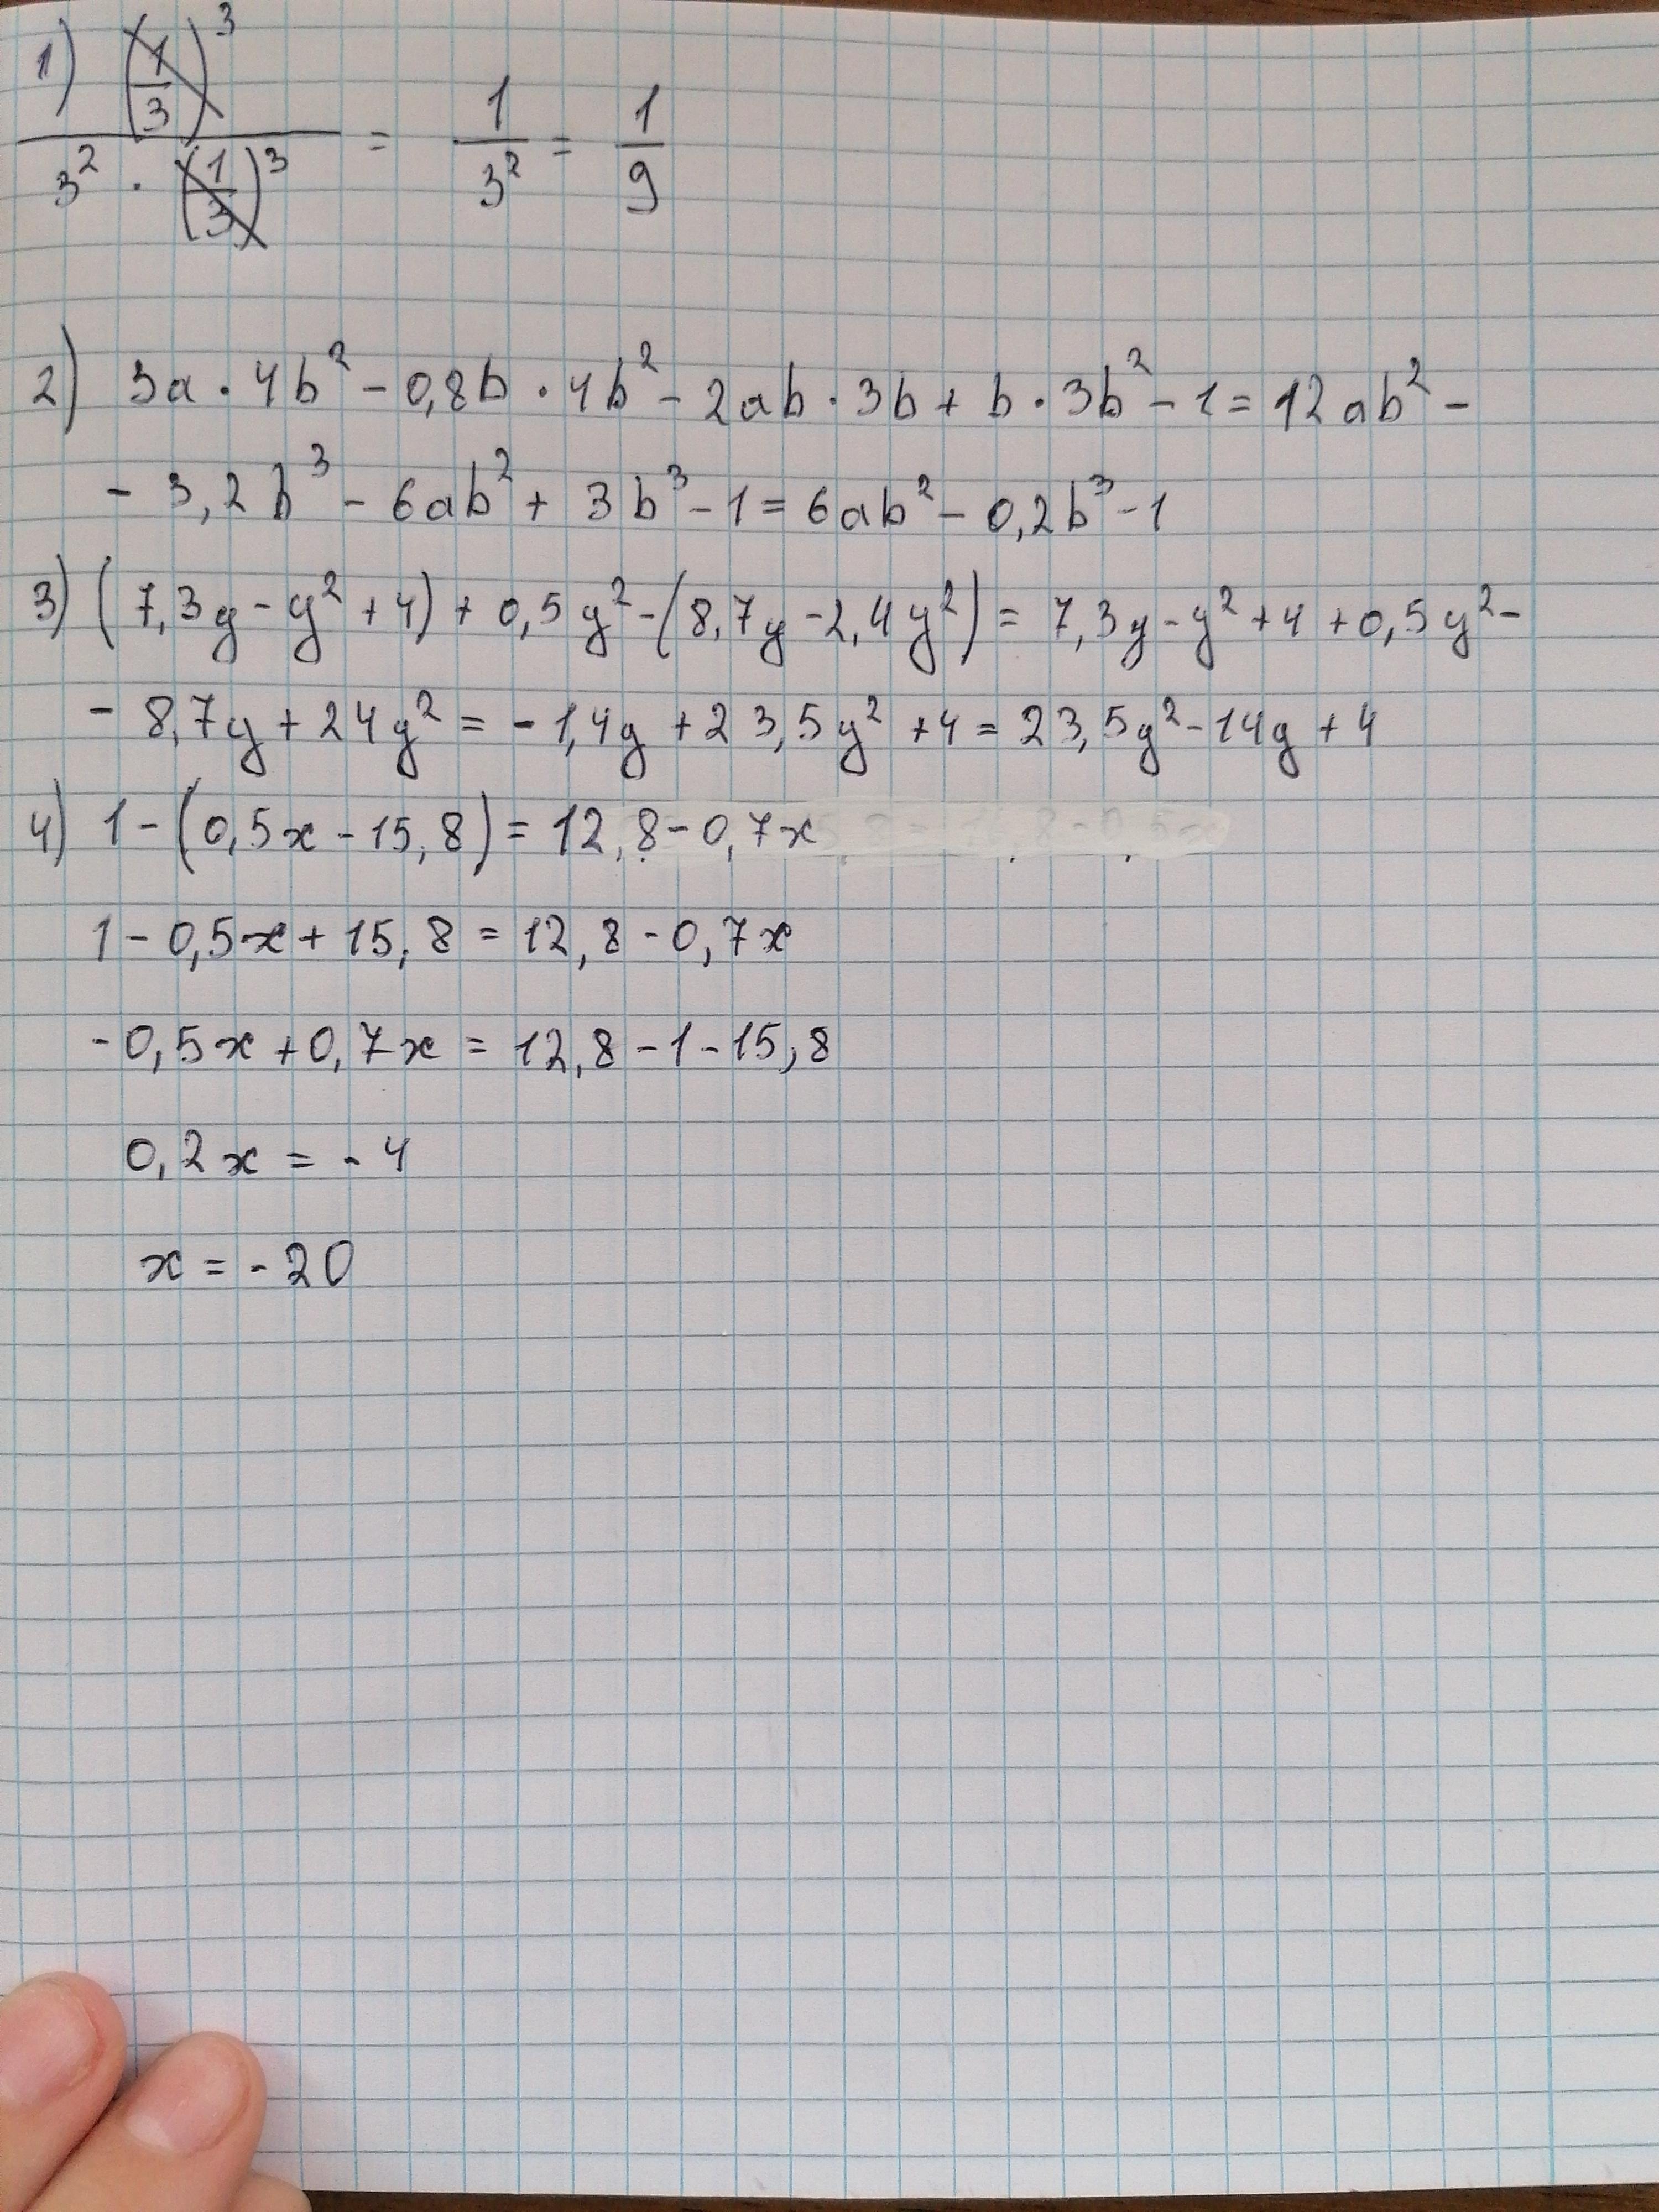 1) (1/3)³ / (3² · (1/3)³) = 1/3² = 1/9
2) 3a · 4b² - 0,8b · 4b² - 2ab · 3b + b · 3b² - 1 = 12ab² -
- 3,2b³ - 6ab² + 3b³ - 1 = 6ab² - 0,2b³ - 1
3) (7,3y - y² + 4) + 0,5y² - (8,7y - 2,4y²) = 7,3y - y² + 4 + 0,5y² -
- 8,7y + 24y² = - 1,4y + 23,5y² + 4 = 23,5y² - 14y + 4
4) 1 - (0,5x - 15,8) = 12,8 - 0,7x
1 - 0,5x + 15,8 = 12,8 - 0,7x
- 0,5x + 0,7x = 12,8 - 1 - 15,8
0,2x = - 4
x = - 20